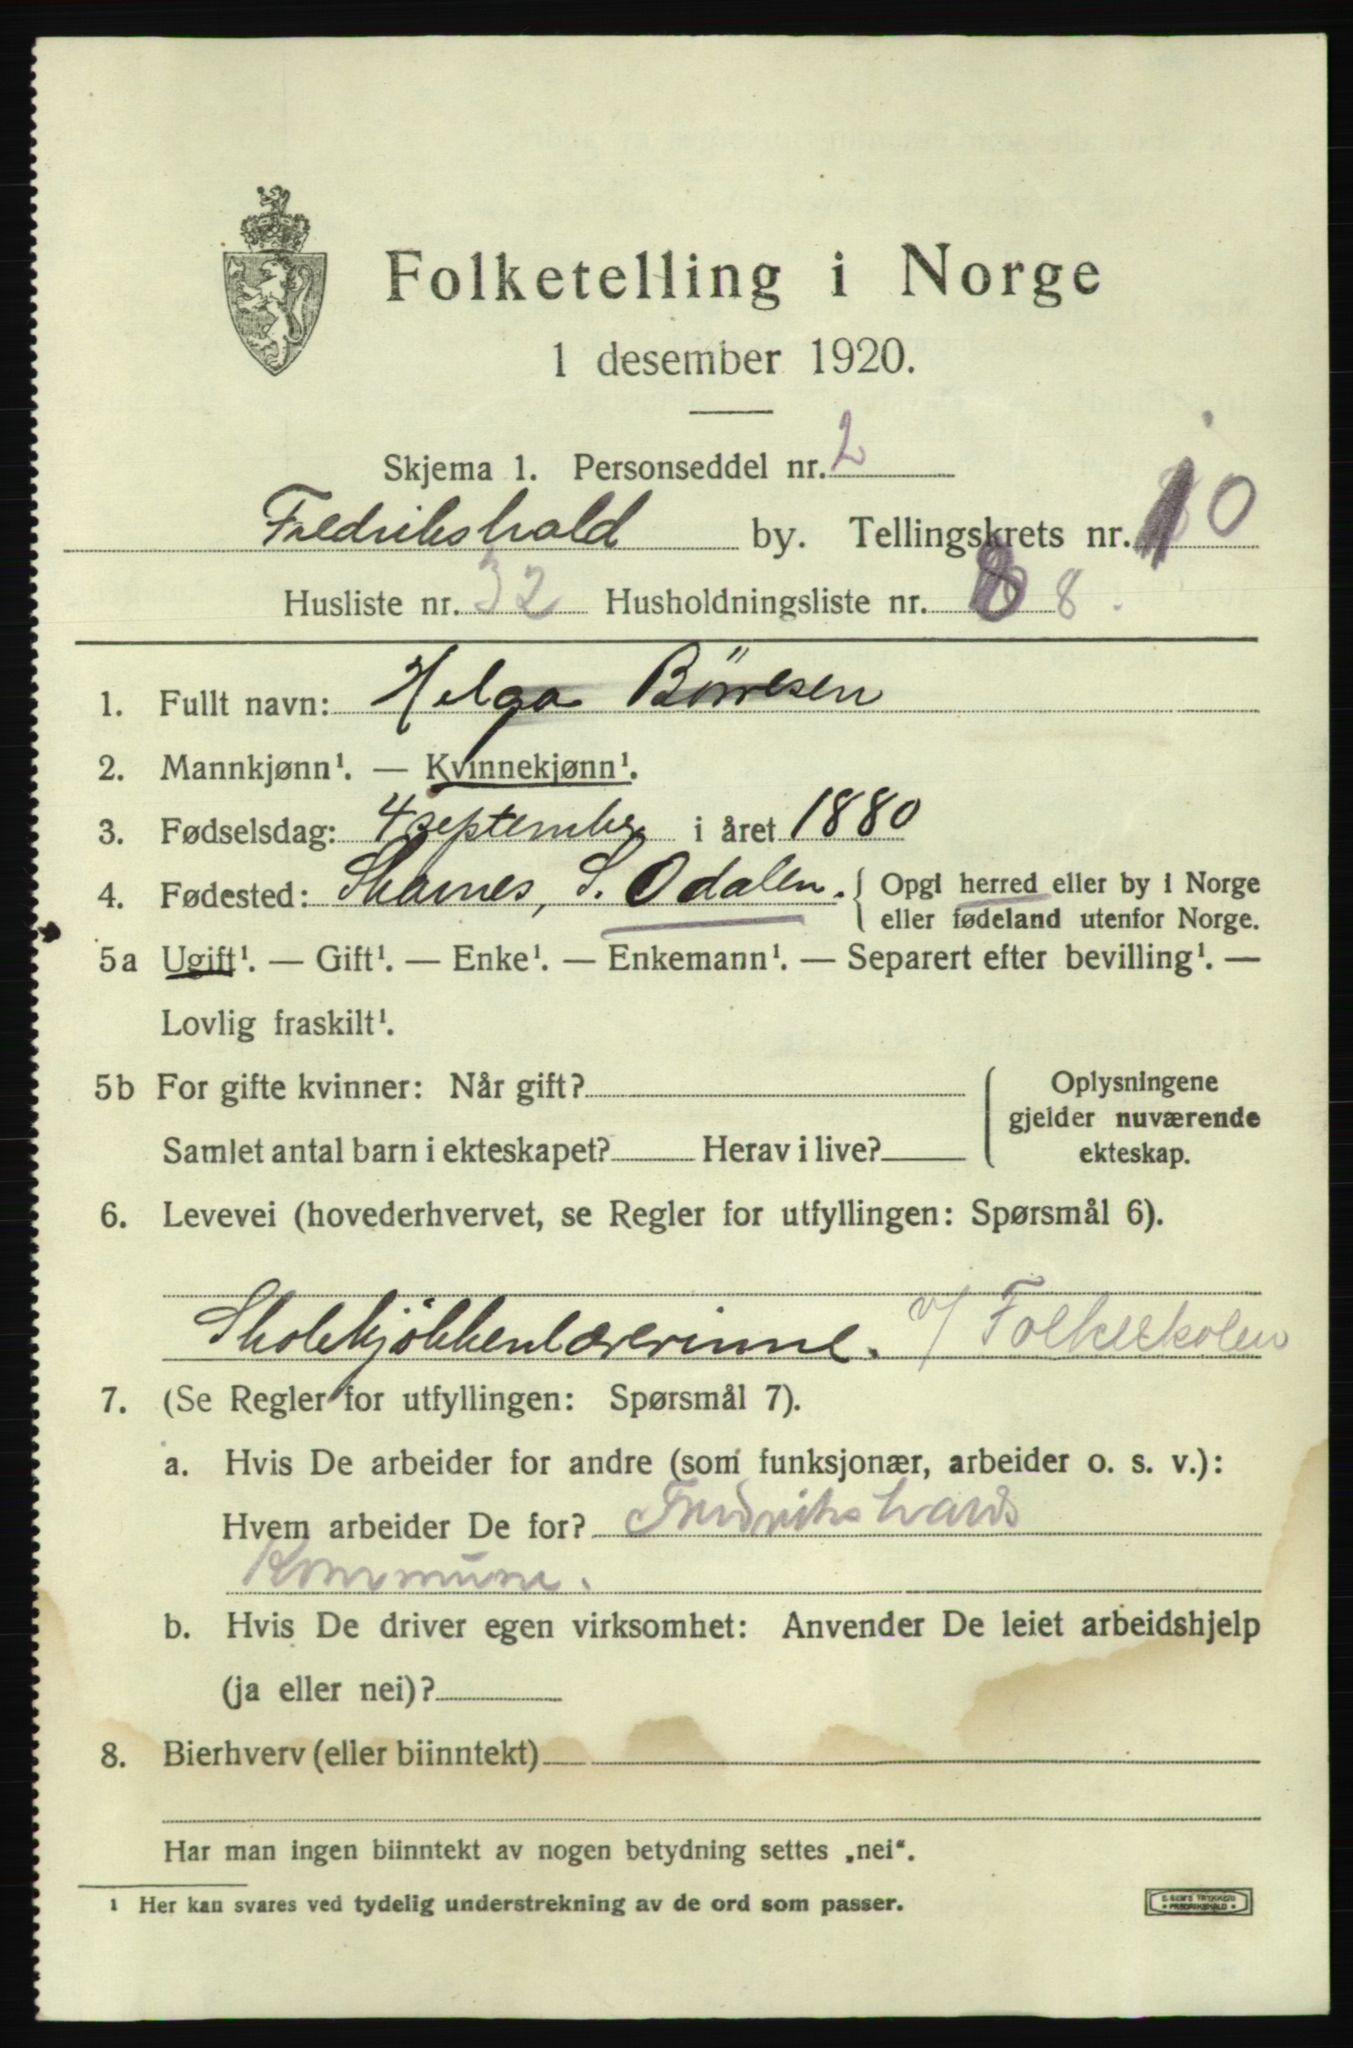 Folketelling i Norge
1 desember 1920.
Skjema 1. Personseddel nr. 2
Fredrikshald by. Tellingskrets nr. 10
Husliste nr. 32 Husholdningsliste nr. 8 8.
1. Fullt navn: Helga Börresen
2. Mannkjønn¹. — Kvinnekjønn¹.
3. Fødselsdag: 4 september i året 1880
4. Fødested: Skarnes, S. Odalen. { Opgi herred eller by i Norge
eller fødeland utenfor Norge.
5a Ugift¹. — Gift¹. — Enke¹. — Enkemann¹. — Separert efter bevilling¹. —
Lovlig fraskilt¹.
5b For gifte kvinner: Når gift? { Oplysningene
gjelder nuværende
Samlet antal barn i ekteskapet? Herav i live? ekteskap.
6. Levevei (hovederhvervet, se Regler for utfyllingen: Spørsmål 6).
Skolekjökkenlærerinne. v/ Folkeskolen
7. (Se Regler for utfyllingen: Spørsmål 7).
a. Hvis De arbeider for andre (som funksjonær, arbeider o. s. v.):
Hvem arbeider De for? Fredrikshalds
Kommune.
b. Hvis De driver egen virksomhet: Anvender De leiet arbeidshjelp
(ja eller nei)?
8. Bierhverv (eller biinntekt)
Har man ingen biinntekt av nogen betydning settes „nei“.
¹ Her kan svares ved tydelig understrekning av de ord som passer.
FREDRIKSHALD